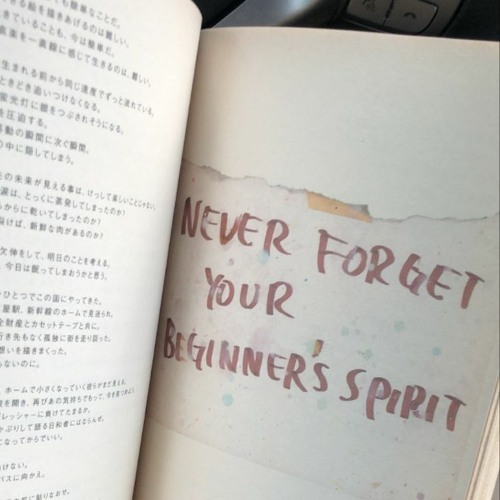 も簡単なことだ。
きる絵を描きあげるのは難しい。
きていることも、今は簡単だ。
音楽を一直線に感じて生きるのは、難しい。
生まれる前から同じ速度でずっと流れている。
ときどき追いつけなくなる。
蛍光灯に をつぶされそうになる。
を圧迫する。
移動の瞬間に次ぐ瞬間、
の中に隠してしまう。
の未来が見える事は、けっして楽しいことじゃない。
涙は、とっくに蒸発してしまったのか？
からに乾いてしまったのか？
けば、新鮮な肉があるのか？
欠伸をして、明日のことを考える。
今日は眠ってしまおうかと思う。
ひとつでこの国にやってきた。
屋駅、新幹線のホームで見送られ、
全財産とカセットテープと共に。
行き先もなく孤独に街を走り回った。
想いを描きまくった。
らないのに。
ホームで小さくなっていく彼らがまだ見える。
を開き、再びあの気持ちでもって、今を見つめよう
プレッシャーに負けてたまるか。
かぶりして語る日和者にはならぬ。
になってからでいい。
いけない。
バスに向かえ。
に貼りなおせ。
NEVER FORGET
YOUR
BEGINNER'S SPIRIT